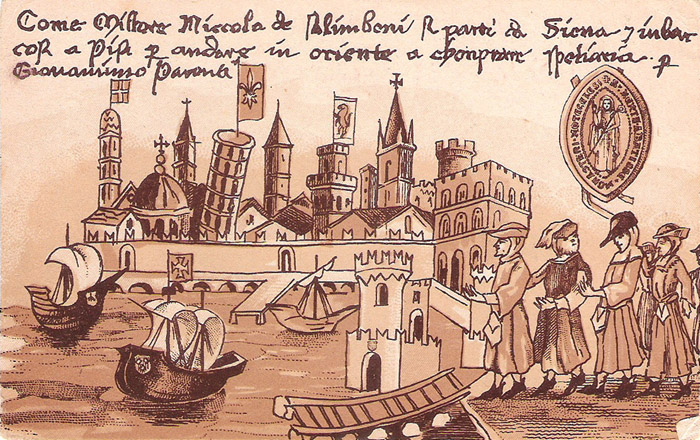 Come Missore Niccola de Salimbeni si parti da Siena 7 inbar
cosi a Pisa p andare in oriente a chomprare spetiaria p
Giovannino Parenti